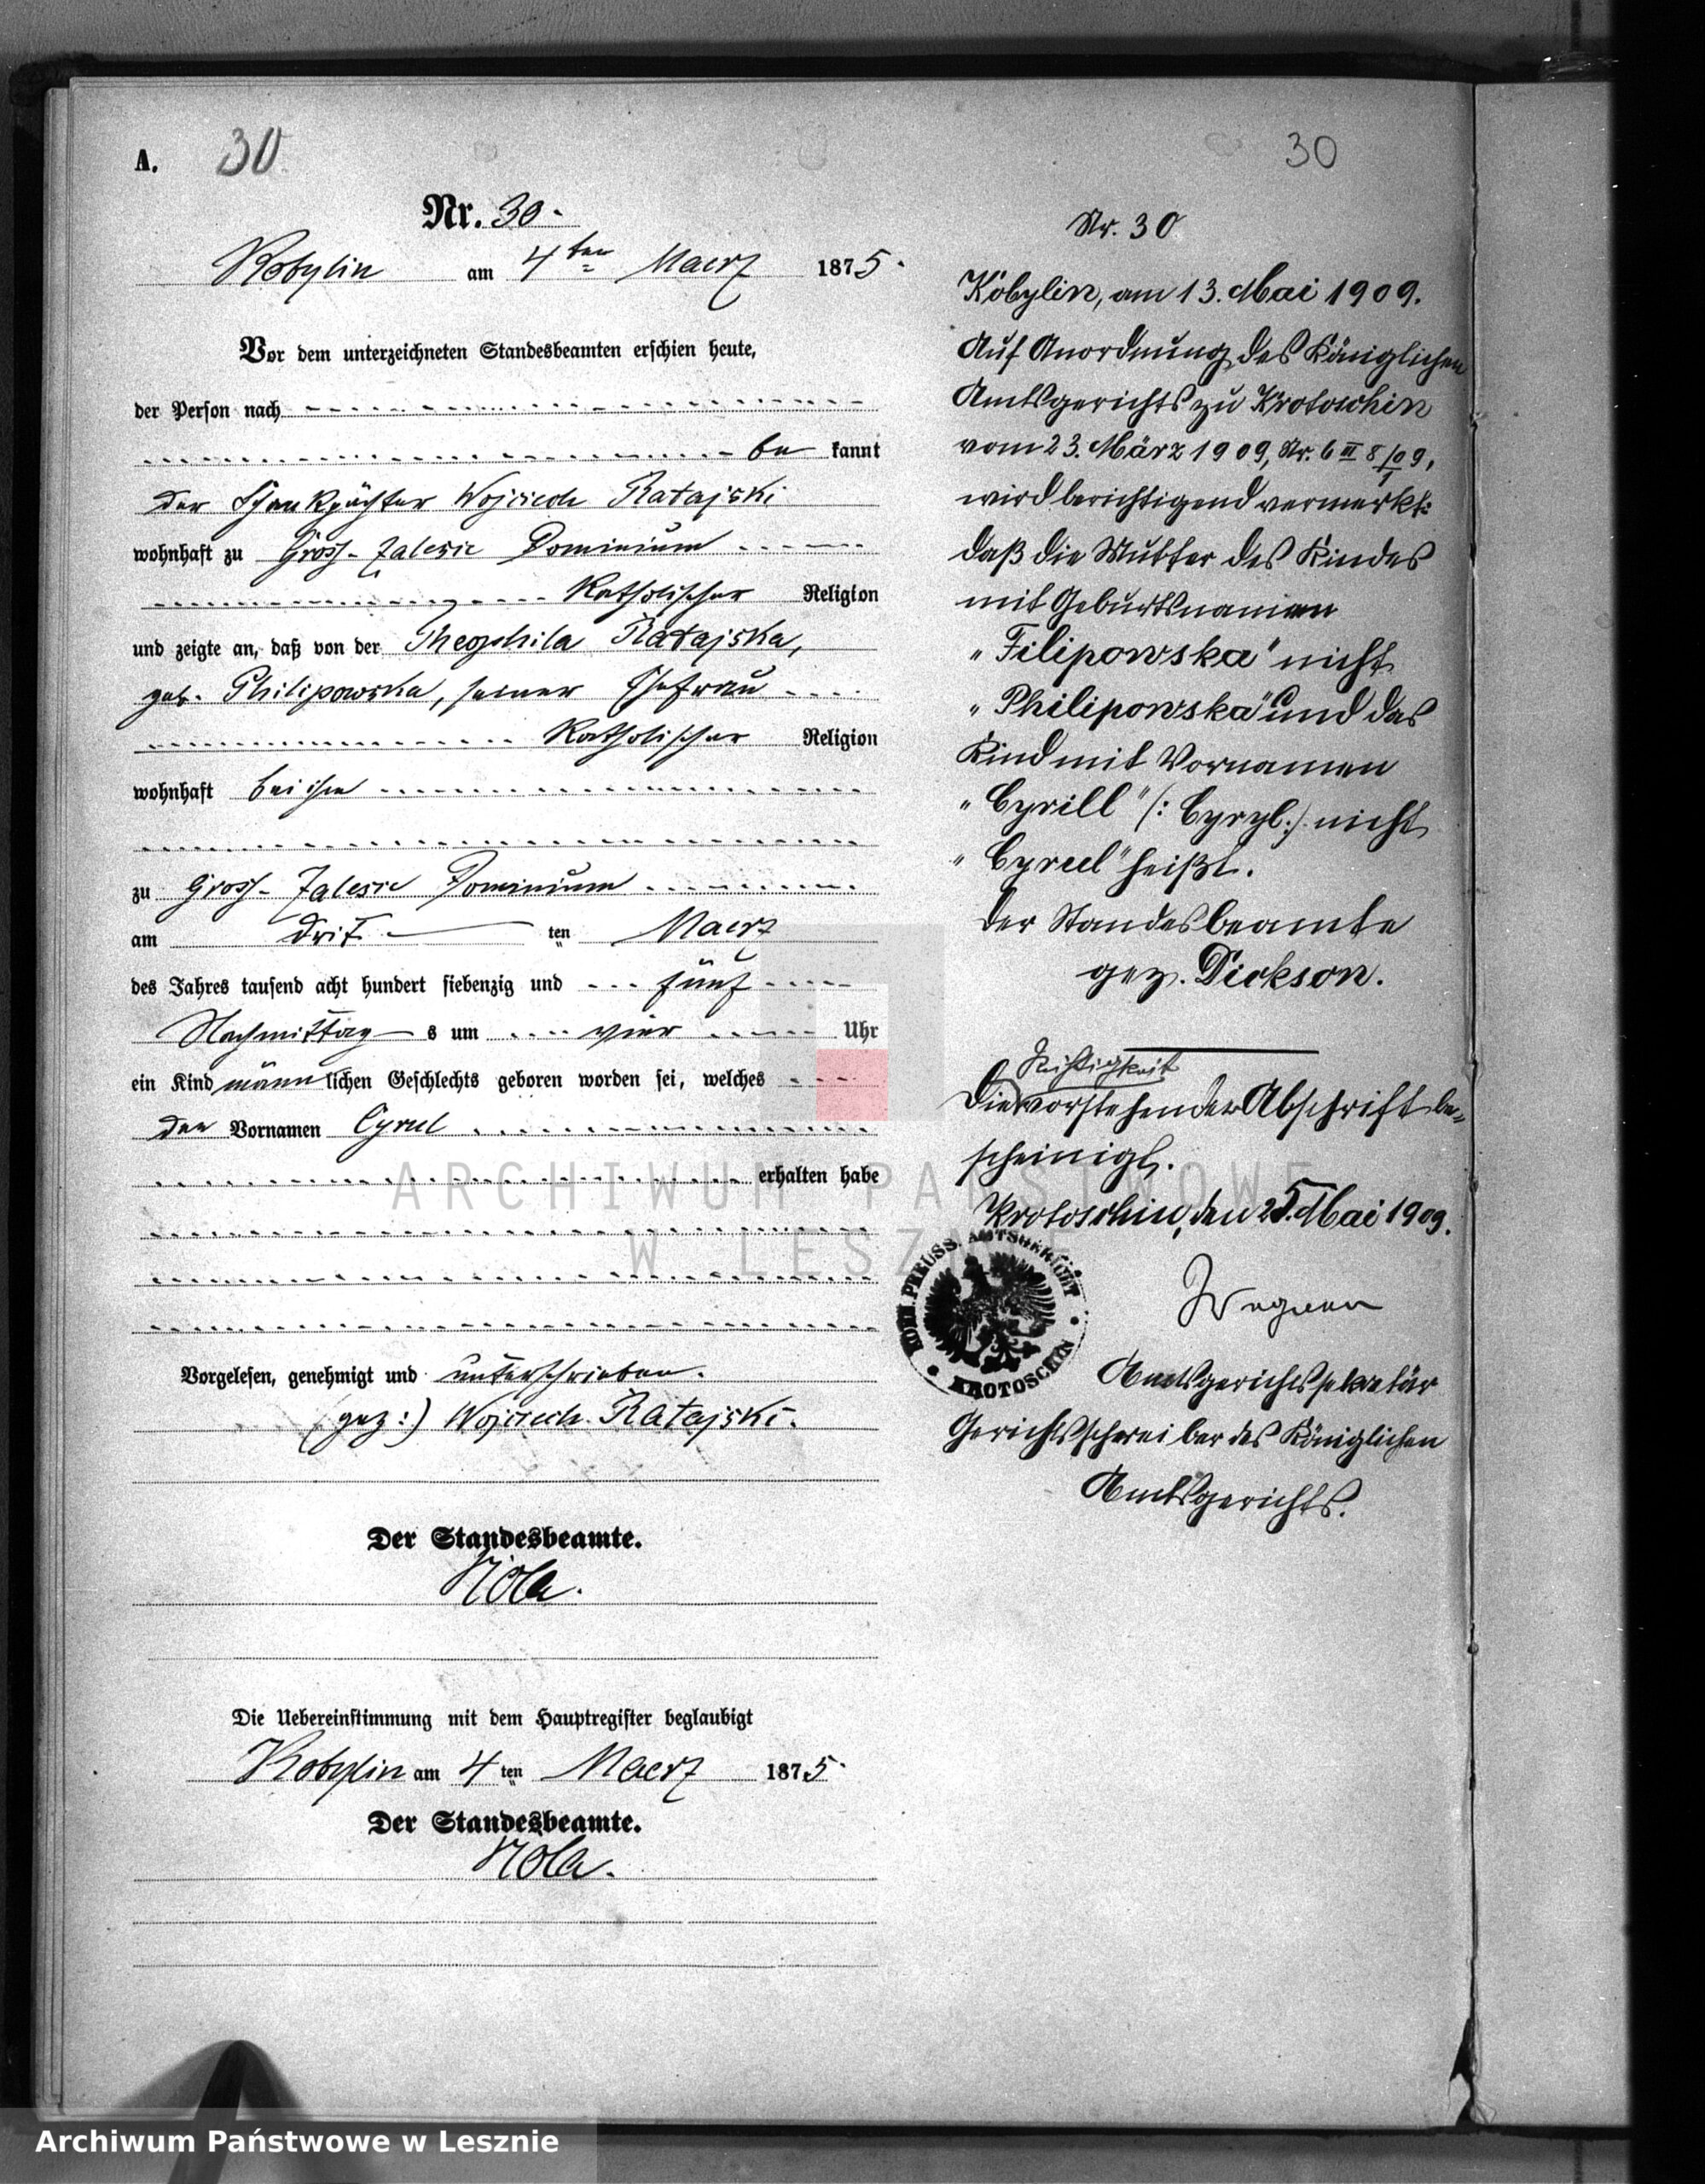 A. 30
Nr. 30.
Kobylin am 4ten Maerz 1875.
Vor dem unterzeichneten Standesbeamten erschien heute,
der Person nach
be kannt
der Schankpächter Wojciech Ratajski
wohnhaft zu Gross-Zalesie Dominium
katholischer Religion
und zeigte an, daß von der Theophila Ratajska,
geb. Philipowska, seiner Ehefrau
katholischer Religion
wohnhaft bei ihm
zu Gross-Zalesie Dominium
am dritten Maerz
des Jahres tausend acht hundert siebenzig und fünf
Nachmittags um vier Uhr
ein Kind männlichen Geschlechts geboren worden sei, welches
den Vornamen Cyrul
erhalten habe
Vorgelesen, genehmigt und unterschrieben.
(gez:) Wojciech Ratajski.
Der Standesbeamte.
Die Uebereinstimmung mit dem Hauptregister beglaubigt
Kobylin am 4ten Maerz 1875.
Der Standesbeamte.
30
Nr. 30
Kobylin, am 13. Mai 1909.
Auf Anordnung des Königlichen
Amtsgerichts zu Krotoschin
vom 23. März 1909, Nr. 6 III 8/09,
1
wird berichtigend vermerkt:
daß die Mutter des Kindes
mit Geburtsnamen
„Filipowska" nicht
„Philipowska" und das
Kind mit Vornamen
„Cyrill" (: Cyryl :) nicht
„Cyrul" heißt.
Der Standesbeamte
gez. Dickson.
Richtigkeit
Die vorstehender Abschrift be-
scheinigt.
Krotoschin, den 25. Mai 1909.
KÖNL. PREUSS. AMTSGERICHT
KROTOSCHIN
Wegner
Amtsgerichtssekretär
Gerichtsschreiber des Königlichen
Amtsgerichts.
ARCHIWUM PAŃSTWOWE
W LESZNIE
Archiwum Państwowe w Lesznie